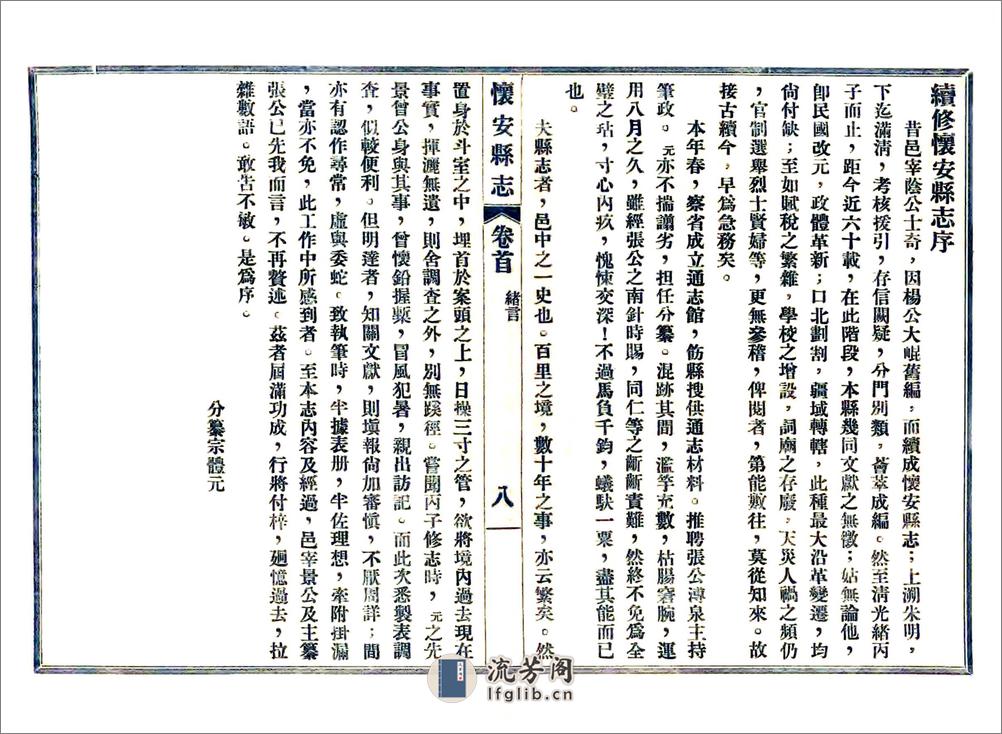 續修懷安縣志序
昔邑宰蔭公士奇，因楊公大崐舊編，而續成懷安縣志；上溯朱明，
下迄滿清，考核援引，存信闕疑，分門別類，薈萃成編。然至清光緒丙
子而止，距今近六十載，在此階段，本縣幾同文獻之無徵；姑無論他，
卽民國改元，政體革新；口北劃割，疆域轉轄，此種最大沿革變遷，均
尙付缺；至如賦稅之繁雜，學校之增設，詞廟之存廢，天災人禍之頻仍
，官制選舉烈士賢婦等，更無參稽，俾閱者，第能數往，莫從知來。故
接古續今，早爲急務矣。
本年春，察省成立通志館，飭縣搜供通志材料。推聘張公溥泉主持
筆政。元亦不揣譾劣，担任分纂。混跡其間，濫竽充數，枯腸窘腕，運
用八月之久，雖經張公之南針時賜，同仁等之齗齗責難，然終不免爲全
璧之玷，寸心內疚，愧悚交深！不過馬負千鈞，蟻馱一粟，盡其能而已
也。
夫縣志者，邑中之一史也。百里之境，數十年之事，亦云繁矣。然
懷安縣志
卷首
緒言
八
置身於斗室之中，埋首於案頭之上，日操三寸之管，欲將境內過去現在
事實，揮灑無遺，則舍調查之外，別無蹊徑。嘗聞丙子修志時，元之先
景曾公身與其事，曾懷鉛握槧，冒風犯暑，親出訪記。而此次悉製表調
查，似較便利。但明達者，知關文獻，則填報尙加審愼，不厭周詳；間
亦有認作尋常，虛與委蛇。致執筆時，半據表册，半佐理想，牽附掛漏
，當亦不免，此工作中所感到者。至本志內容及經過，邑宰景公及主纂
張公已先我而言，不再贅述。茲者屆滿功成，行將付梓，廻憶過去，拉
雜數語。敢告不敏。是爲序。
分纂宗體元
流芳阁
lfglib.cn